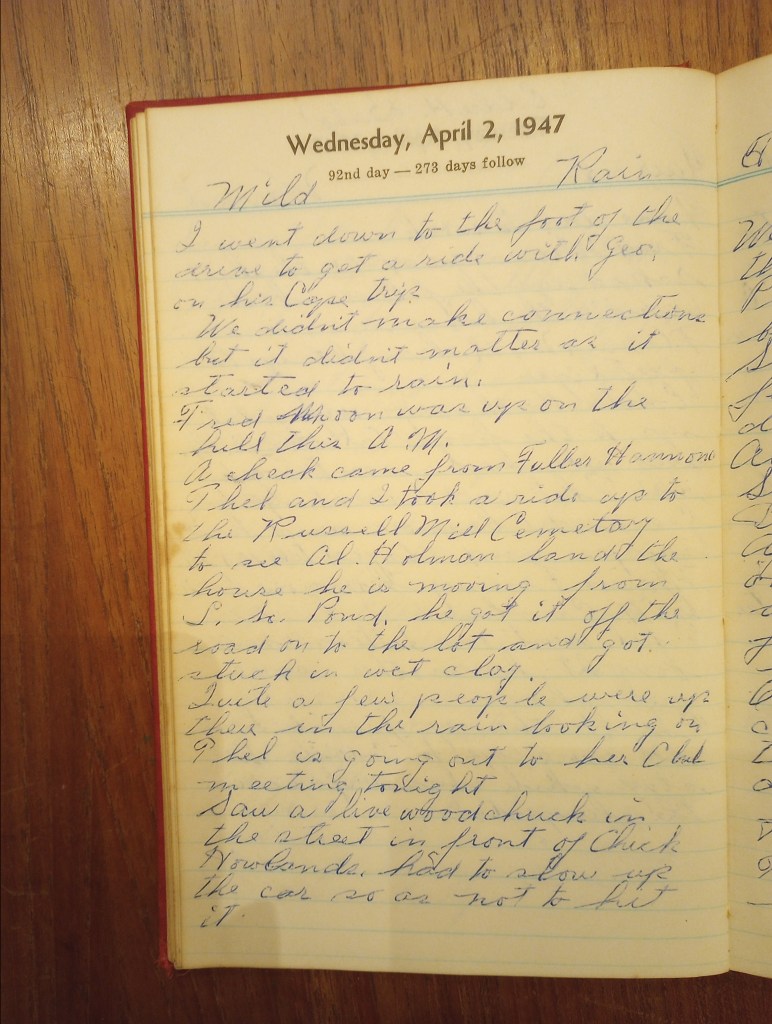 Wednesday, April 2, 1947
92nd day — 273 days follow
Mild Rain
I went down to the foot of the
drive to get a ride with Geo.
on his Cape trip
We didn't make connections
but it didn't matter as it
started to rain.
Fred Moon was up on the
hill this A.M.
A check came from Fuller Hammond
Thel and I took a ride up to
the Russell Mill Cemetary
to see Al. Holman land the
house he is moving from
L. So. Pond. he got it off the
road on to the lot and got
stuck in wet clay.
Quite a few people were up
there in the rain looking on
Thel is going out to her Club
meeting tonight
Saw a live woodchuck in
the street in front of Chick
Howlands. had to slow up
the car so as not to hit
it.